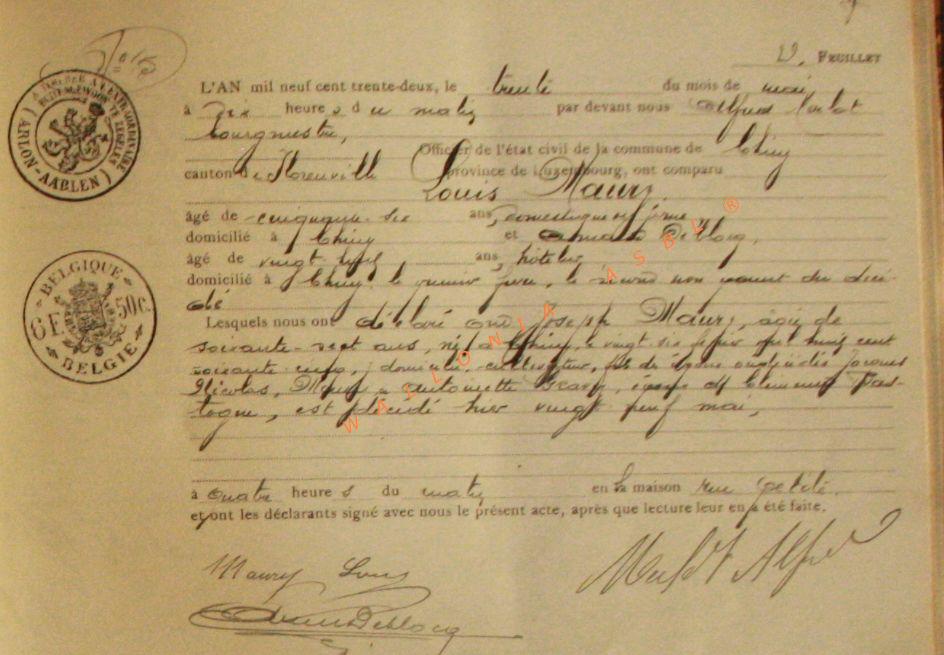 FEUILLET
L'AN mil neuf cent trente-deux, le trente du mois de mai
à dix heures du matin par devant nous Alfred
bourgmestre,
Officier de l'état civil de la commune de Chiny
canton de Florenville province de Luxembourg, ont comparu
Louis Maury
âgé de cinquante-six ans, domestique de ferme
domicilié à Chiny et Armand Deblocq,
âgé de vingt ans, hôtelier
domicilié à Chiny, le premier frère, le second non parent du décé-
dé
Lesquels nous ont déclaré que Joseph Maury, âgé de
soixante-sept ans, né à Chiny, le vingt six mil huit cent
soixante cinq, y domicilié, cultivateur, fils de Jacques
Nicolas, Maury et Antoinette époux de Clémence Bas-
togne, est décédé hier vingt neuf mai,
à quatre heures du matin en la maison rue petite.
et ont les déclarants signé avec nous le présent acte, après que lecture leur en a été faite.
Maury Louis
Deblocq
Alfred
(ARLON-AARLEN)
BELGIQUE
6F. 50c
BELGIE
WALLONIA ASBL ®